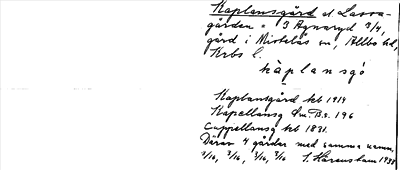 Kaplansgård el. Lassa-
gården = 3 Agnaryd 3/4,
gård i Mistelås sn, Allbo hd,
Krbs l.
kàplansgó
Kaplansgård kb 1914
Kapellansg Sm. B.s. 196
Cappellansg kb 1831.
Därav 4 gårdar med samma namn,
3/16, 3/16, 3/16, 3/16 1938